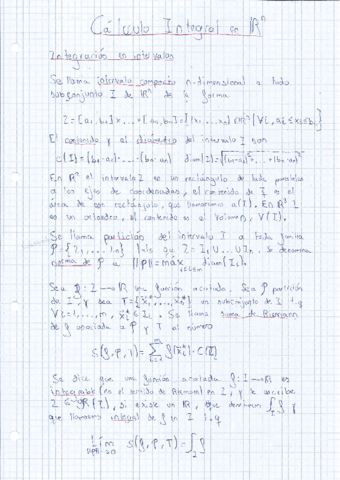 Cálculo Integral en ℝⁿ
Integración en intervalos
Se llama intervalo compacto n-dimensional a todo
subconjunto I de ℝⁿ de la forma
I = [a₁, b₁]x...x[aₙ, bₙ] = {(x₁...xₙ) ∈ ℝⁿ | ∀i, aᵢ ≤ xᵢ ≤ bᵢ}
El contenido y el diámetro del intervalo I son
c(I) = (b₁-a₁)·...·(bₙ-aₙ) diam(I) = √(b₁-a₁)²+...+(bₙ-aₙ)²
En ℝ² el intervalo I es un rectángulo de lados paralelos
a los ejes de coordenadas, el contenido de I es el
área de ese rectángulo, que llamaremos a(I). En ℝ³ I
es un ortoedro, el contenido es el volumen, V(I).
Se llama partición del intervalo I a toda familia
P = {I₁, ..., Iₘ} tal que I = I₁ ∪ ... ∪ Iₘ. Se denomina
norma de P a ||P|| = max diam(Iᵢ).
1≤i≤m
Sea f: I → ℝ una función acotada. Sea P partición
de I, y sea T = {x₁*, ..., xₘ*} un subconjunto de I t.q
∀i = 1, ..., m, xᵢ* ∈ Iᵢ. Se llama suma de Riemann
de f asociada a P y T al número
S(f, P, T) = Σ f(xᵢ*) · C(Iᵢ)
Se dice que una función acotada f: I → ℝ es
integrable (en el sentido de Riemann) en I, y se escribe
si existe un ℝ, que denotamos ∫_I f y
que llamamos integral de f en I t.q
lím S(f, P, T) = ∫_I f
||P||→0